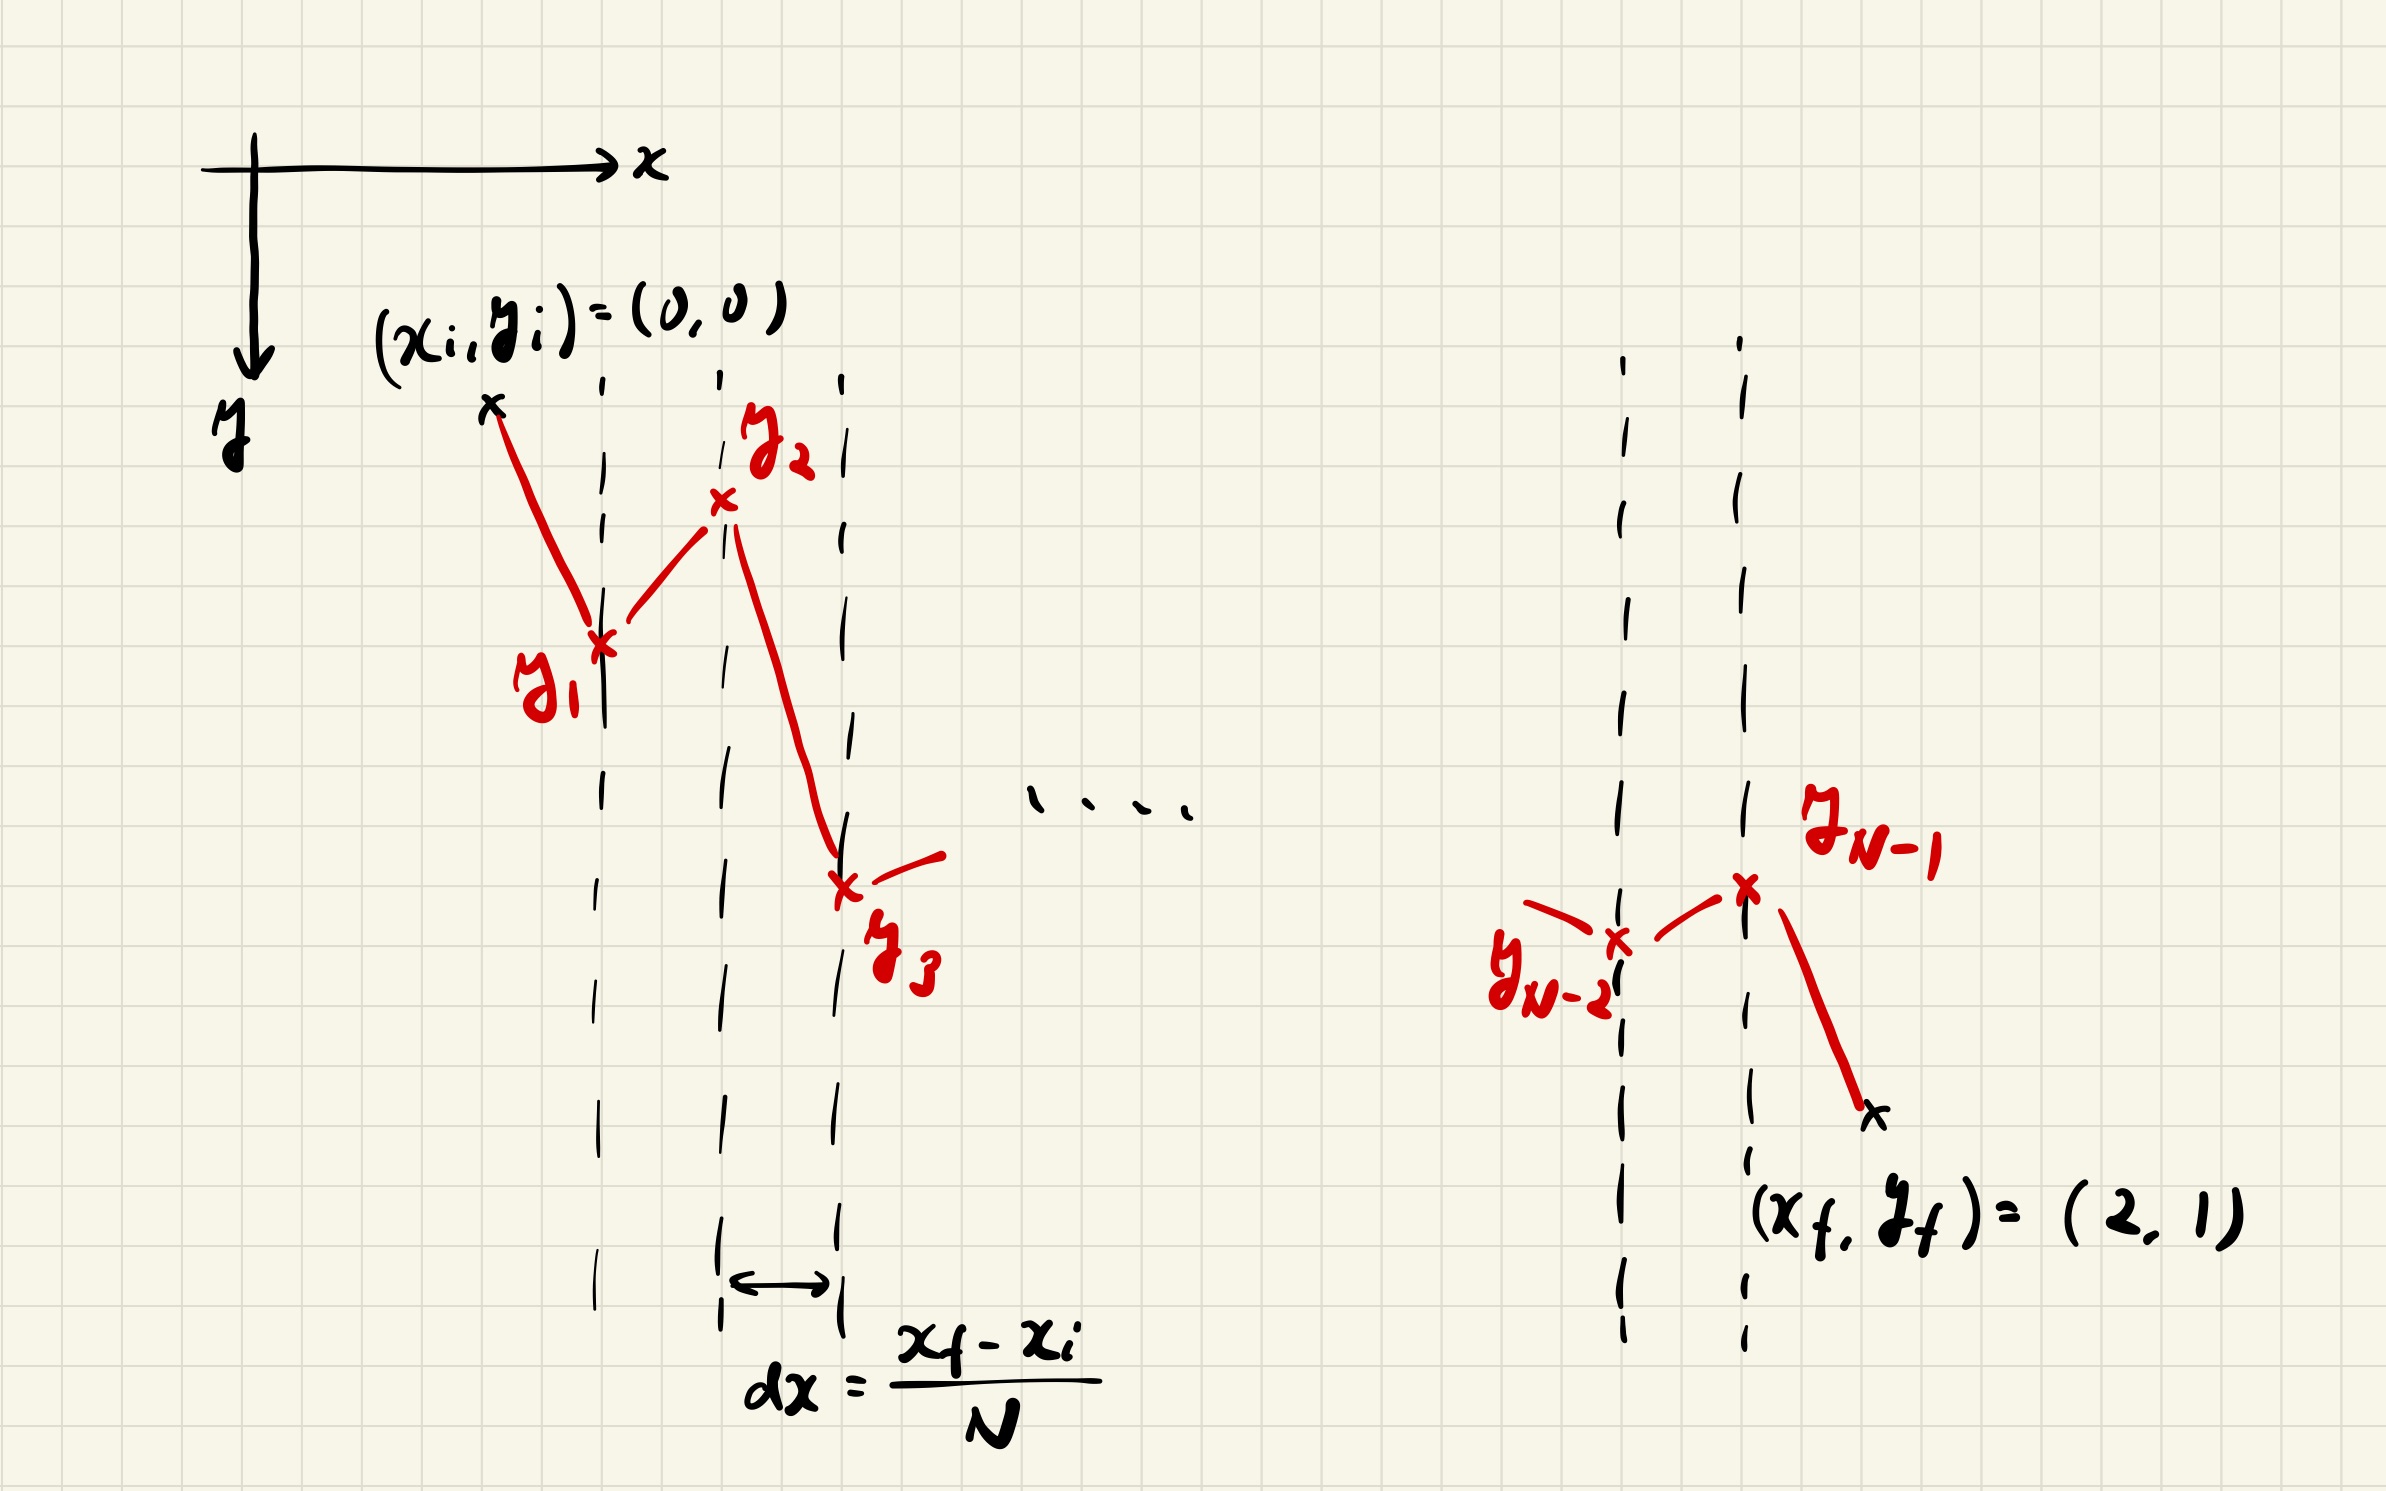 x
y
(xi, yi) = (0, 0)
y2
y1
y3
. . . .
yN-1
yN-2
(xf, yf) = (2, 1)
dx = xf - xi / N